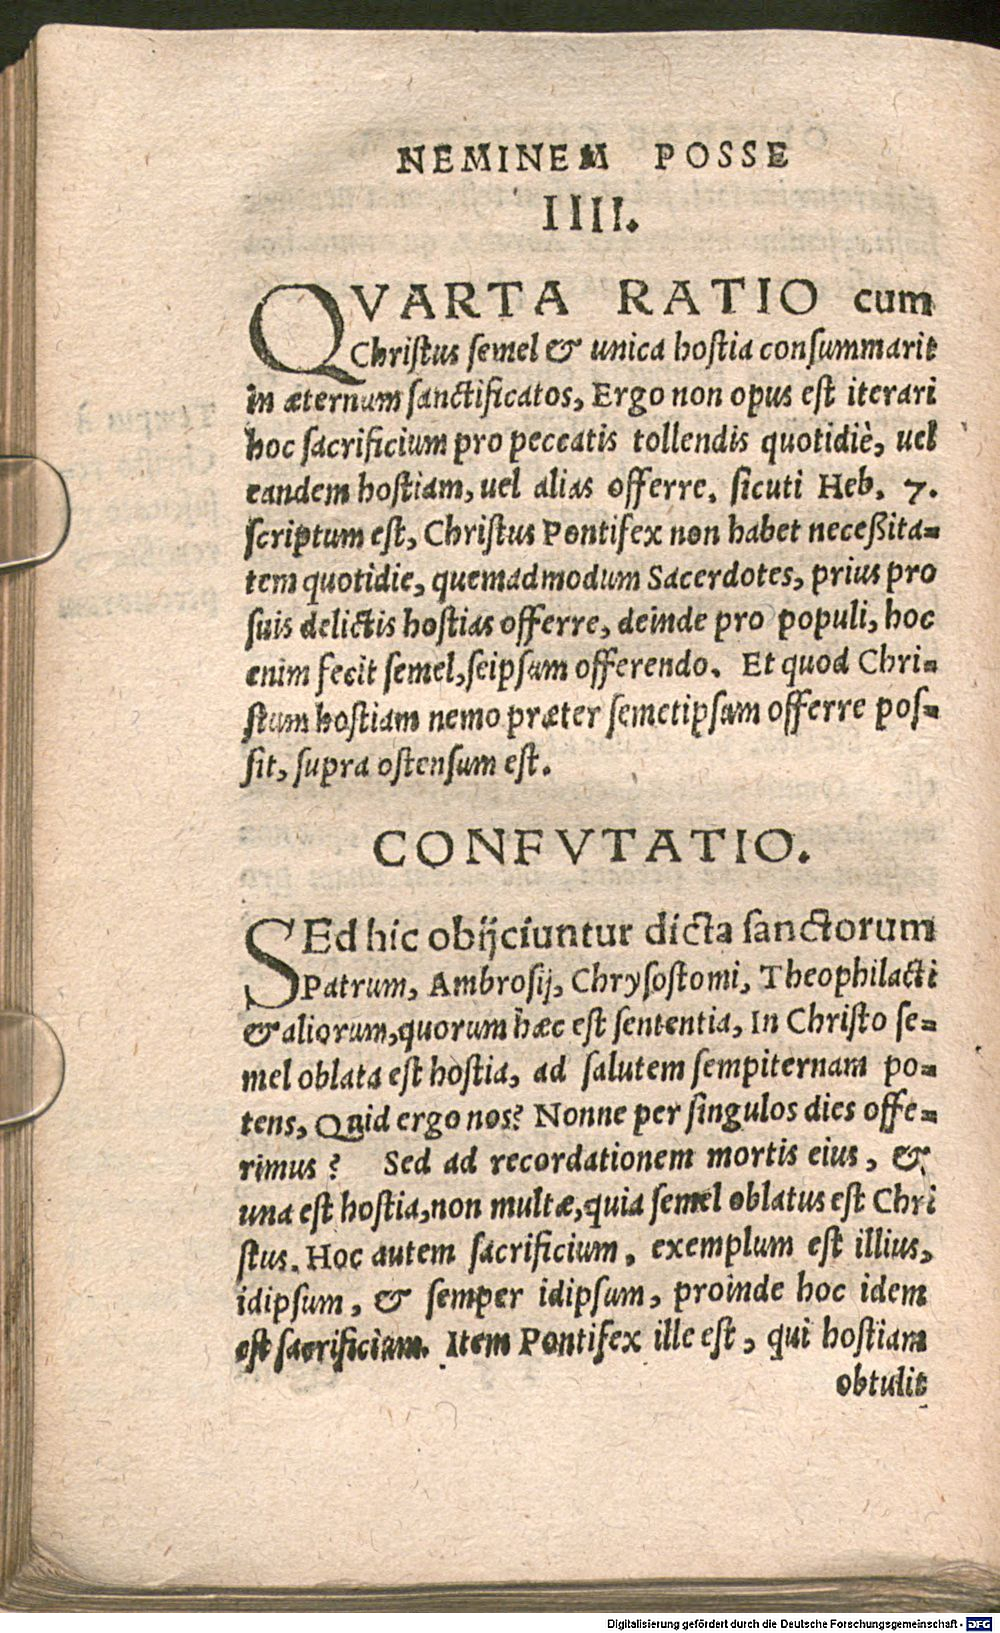 NEMINEM POSSE
IIII.
QVARTA RATIO cum
Christus semel & unica hostia consummarit
in æternum sanctificatos, Ergo non opus est iterari
hoc sacrificium pro peccatis tollendis quotidiè, uel
eandem hostiam, uel alias offerre. sicuti Heb. 7.
scriptum est, Christus Pontifex non habet neceßita-
tem quotidie, quemadmodum Sacerdotes, prius pro
suis delictis hostias offerre, deinde pro populi, hoc
enim fecit semel, seipsam offerendo. Et quod Chri-
stum hostiam nemo præter semetipsam offerre pos-
sit, supra ostensum est.
CONFVTATIO.
SEd hic obijciuntur dicta sanctorum
Patrum, Ambrosij, Chrysostomi, Theophilacti
& aliorum, quorum hæc est sententia, In Christo se-
mel oblata est hostia, ad salutem sempiternam po-
tens, Quid ergo nos? Nonne per singulos dies offe-
rimus? Sed ad recordationem mortis eius, &
una est hostia, non multæ, quia semel oblatus est Chri
stus. Hoc autem sacrificium, exemplum est illius,
idipsum, & semper idipsum, proinde hoc idem
est sacrificium. Item Pontifex ille est, qui hostiam
obtulit
Digitalisierung gefördert durch die Deutsche Forschungsgemeinschaft - DFG